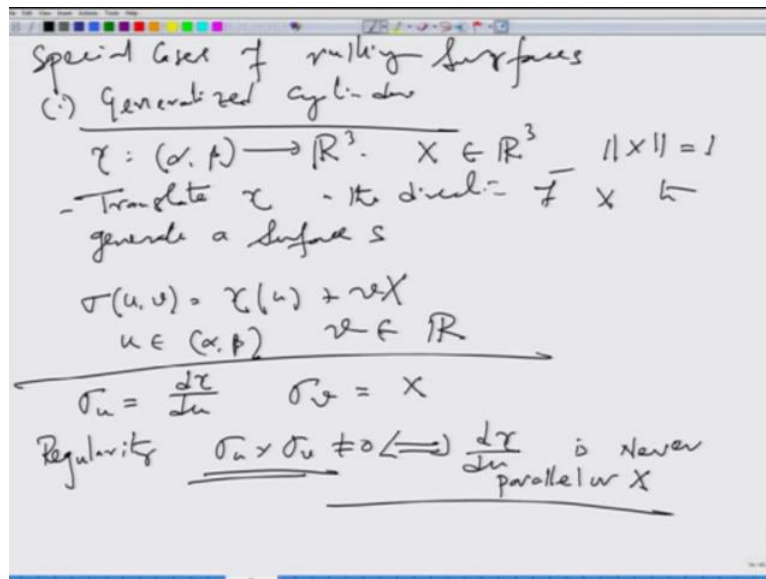 Special Cases of ruling Surfaces
(i) Generalized cylinder
γ : (α, β) → ℝ³. X ∈ ℝ³ ||X|| = 1
- Translate γ in the direction of X to
generate a Surface S
σ(u, v) = γ(u) + vX
u ∈ (α, β) v ∈ ℝ
σ_u = dγ/du σ_v = X
Regularity σ_u × σ_v ≠ 0 ⟺ dγ/du is Never
parallel w X